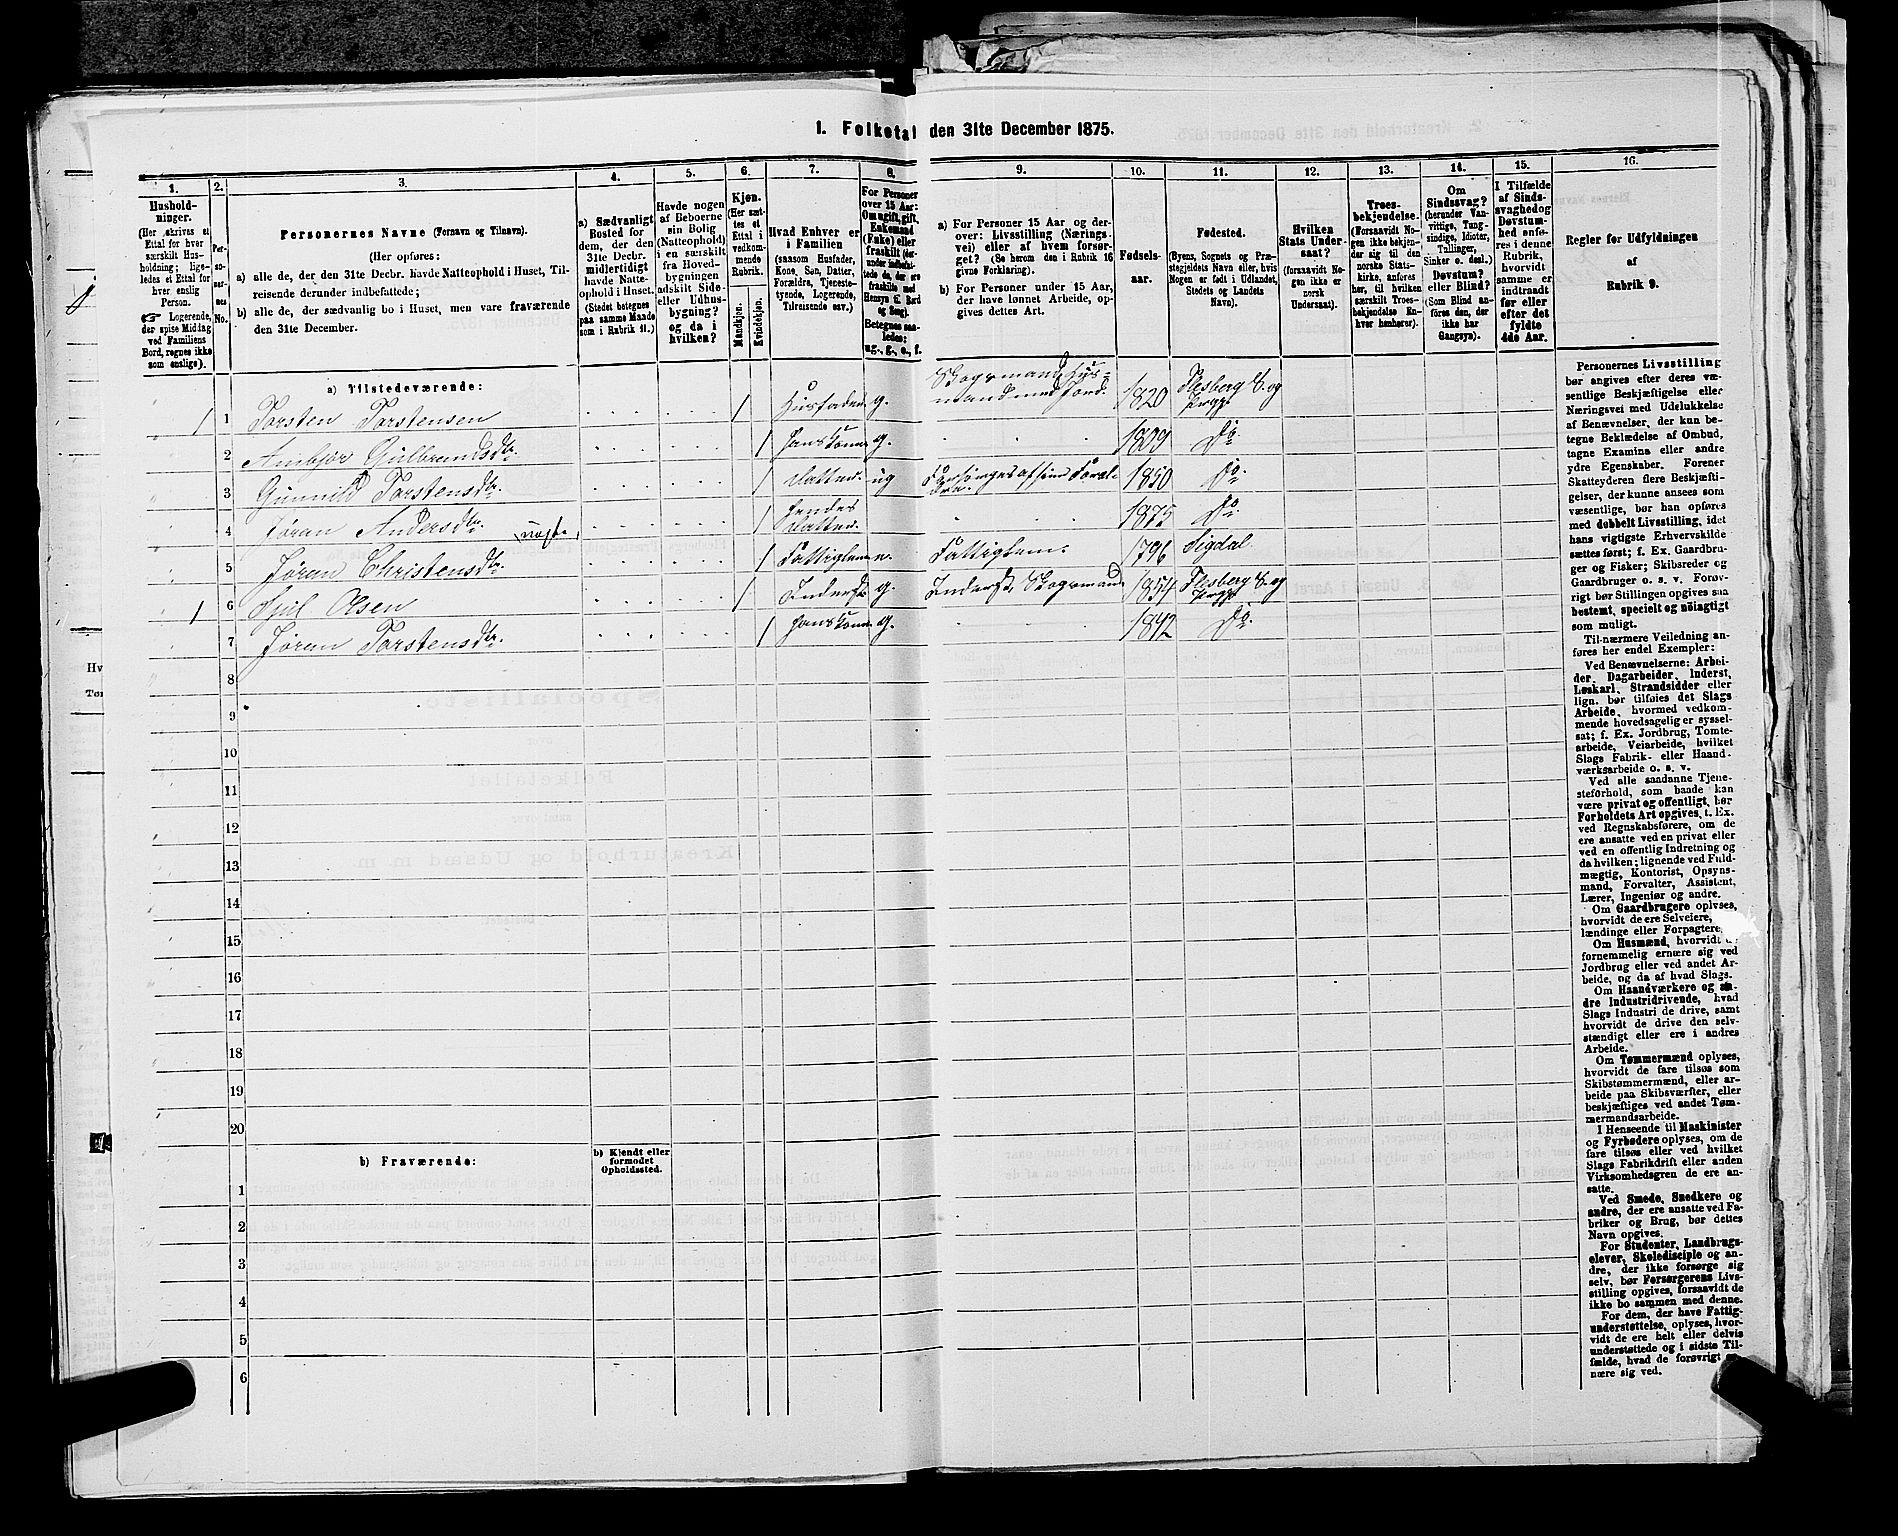 1. Folketal den 31te December 1875.
1.
2.
3.
4.
5.
6.
7.
8.
9.
10.
11.
12.
13.
14.
15.
16.
Hushold-
ninger.
(Her skrives et
Ettal for hver
særskilt Hus-
holdning; lige-
ledes et Ettal for
hver enslig
Person.
☞ Logerende,
der spise Middag
ved Familiens
Bord, regnes ikke
som enslige).
Per-
so-
ner-
nes
No.
Personernes Navne (Fornavn og Tilnavn).
(Her opføres:
a) alle de, der den 31te Decbr. havde Natteophold i Huset, Til-
reisende derunder indbefattede;
b) alle de, der sædvanlig bo i Huset, men vare fraværende
den 31te December.
a) Sædvanligt
Bosted for
dem, der den
31te Decbr.
midlertidigt
havde Natte-
ophold i Huset.
(Stedet betegnes
paa samme Maade
som i Rubrik 11.)
Havde nogen
af Beboerne
sin Bolig
(Natteophold)
i en særskilt
fra Hoved-
bygningen
adskilt Side-
eller Udhus-
bygning?
og da i
hvilken?
Kjøn.
(Her sæt-
tes et
Ettal i
vedkom-
mende
Rubrik.
Mandkjøn.
Kvindekjøn.
Hvad Enhver er
i Familien
(saasom Husfader,
Kone, Søn, Datter,
Forældre, Tjeneste-
tyende, Logerende,
Tilreisende osv.)
For Personer
over 15 Aar:
Om ugift, gift,
Enkemand
(Enke) eller
fraskilt
Betegnes saa-
ledes:
ug., g., e., f.
a) For Personer 15 Aar og der-
over: Livsstilling (Nærings-
vei) eller af hvem forsør-
get? (Se herom den i Rubrik 16
givne Forklaring).
b) For Personer under 15 Aar,
der have lønnet Arbeide, op-
gives dettes Art.
Fødsels-
aar.
Fødested.
(Byens, Sognets og Præ-
stegjeldets Navn eller, hvis
Nogen er født i Udlandet,
Stedets og Landets
Navn).
Hvilken
Stats Under-
saat?
(forsaavidt No-
gen ikke er
norsk
Undersaat).
Troes-
bekjendelse.
(Forsaavidt No-
gen ikke bekjen-
der sig til den
norske Stats-
kirke, anføres
her, til hvilken
særskilt Troes-
bekjendelse En-
hver henhører).
Om
Sindssvag?
(herunder Van-
vittige, Tung-
sindige, Idioter,
Tullinger,
Sinker o. desl.)
Døvstum?
eller Blind?
(Som Blind an-
føres den, der
ikke har
Gangsyn).
I Tilfælde
af Sinds-
svaghed og
Døvstum-
hed anfø-
res i denne
Rubrik,
hvorvidt
samme er
indtraadt
før eller
efter det
fyldte
4de Aar.
Regler for Udfyldningen
af
Rubrik 9.
a) Tilstedeværende:
1 1 Torsten Torstensen 1 Husfader g. Skogsmand, Hus-
mand med Jord. 1820 Flesberg S. og
Prgj.
2 Ambjør Gulbrandsdtr. 1 Hans Kone g. 1829 Do.
3 Gunnild Torstensdtr. 1 Datter ug 1850 Do.
4 Jøran Andersdtr. 1 Hendes
Datter. 1875 Do.
5 Jøran Christensdtr. 1 Fattiglem e. Fattiglem. 1796 Sigdal.
1 6 Olsen 1 Inderst g. Inderst, Skogsmand 1854 Flesberg S. og
Prgj.
7 Jøran Torstensdtr. 1 Hans Kone g. 1842 Do.
8
9
10
11
12
13
14
15
16
17
18
19
20
b) Fraværende:
b) Kjendt eller
formodet
Opholdssted.
1
2
3
4
5
6
Personernes Livsstilling
bør angives efter deres væ-
sentlige Beskjæftigelse eller
Næringsvei med Udelukkelse
af Benævnelser, der kun be-
tegne Beklædelse af Ombud,
tagne Examina eller andre
ydre Egenskaber. Forener
Skatteyderen flere Beskjæfti-
gelser, der kunne ansees som
væsentlige, bør han opføres
med dobbelt Livsstilling, idet
hans vigtigste Erhvervskilde
sættes først; f. Ex. Gaardbru-
ger og Fisker; Skibsreder og
Gaardbruger o. s. v. Forøv-
rigt bør Stillingen opgives saa
bestemt, specielt og nöiagtigt
som muligt.
Til nærmere Veiledning an-
føres her endel Exempler:
Ved Benævnelserne: Arbei-
der, Dagarbeider, Inderst,
Løskarl, Strandsidder eller
lign. bør tilføies det Slags
Arbeide, hvormed vedkom-
mende hovedsagelig er syssel-
sat; f. Ex. Jordbrug, Tomte-
arbeide, Veiarbeide, hvilket
Slags Fabrik- eller Haand-
værksarbeide o. s. v.
Ved alle saadanne Tjene-
steforhold, som baade kan
være privat og offentligt, bør
Forholdets Art opgives, t. Ex.
ved Regnskabsførere, om de
ere ansatte ved en privat eller
ved en offentlig Indretning og
da hvilken; lignende ved Fuld-
mægtig, Kontorist, Opsyns-
mand, Forvalter, Assistent,
Lærer, Ingeniør og andre.
Om Gaardbrugere oplyses,
hvorvidt de ere Selveiere,
Lændinge eller Forpagtere.
Om Husmænd, hvorvidt de
fornemmelig ernære sig ved
Jordbrug eller ved andet Ar-
beide, og da af hvad Slags.
Om Haandværkere og an-
dre Industridrivende, hvad
Slags Industri de drive, samt
hvorvidt de drive den selv-
stændigt eller ere i andres
Arbeide.
Om Tømmermænd oplyses,
hvorvidt de fare tilsøs som
Skibstømmermænd, eller ar-
beide paa Skibsværfter, eller
beskjæftiges ved andet Tøm-
mermandsarbeide.
I Henseende til Maskinister
og Fyrbødere oplyses, om de
fare tilsøs eller ved hvilket
Slags Fabrikdrift eller anden
Virksomhedsgren de ere an-
satte.
Ved Smede, Snedkere og
andre, der ere ansatte ved Fa-
briker og Brug, bør dettes
Navn opgives.
For Studenter, Landbrugs-
elever, Skoledisciple og an-
dre, der ikke forsørge sig
selv, bør Forsørgerens Livs-
stilling opgives, forsaavidt de
ikke bo sammen med denne.
For dem, der have Fattig-
understøttelse, oplyses, hvor-
vidt de ere helt eller delvis
understøttede og i sidste Til-
fælde, hvad de forøvrigt er-
nære sig ved.